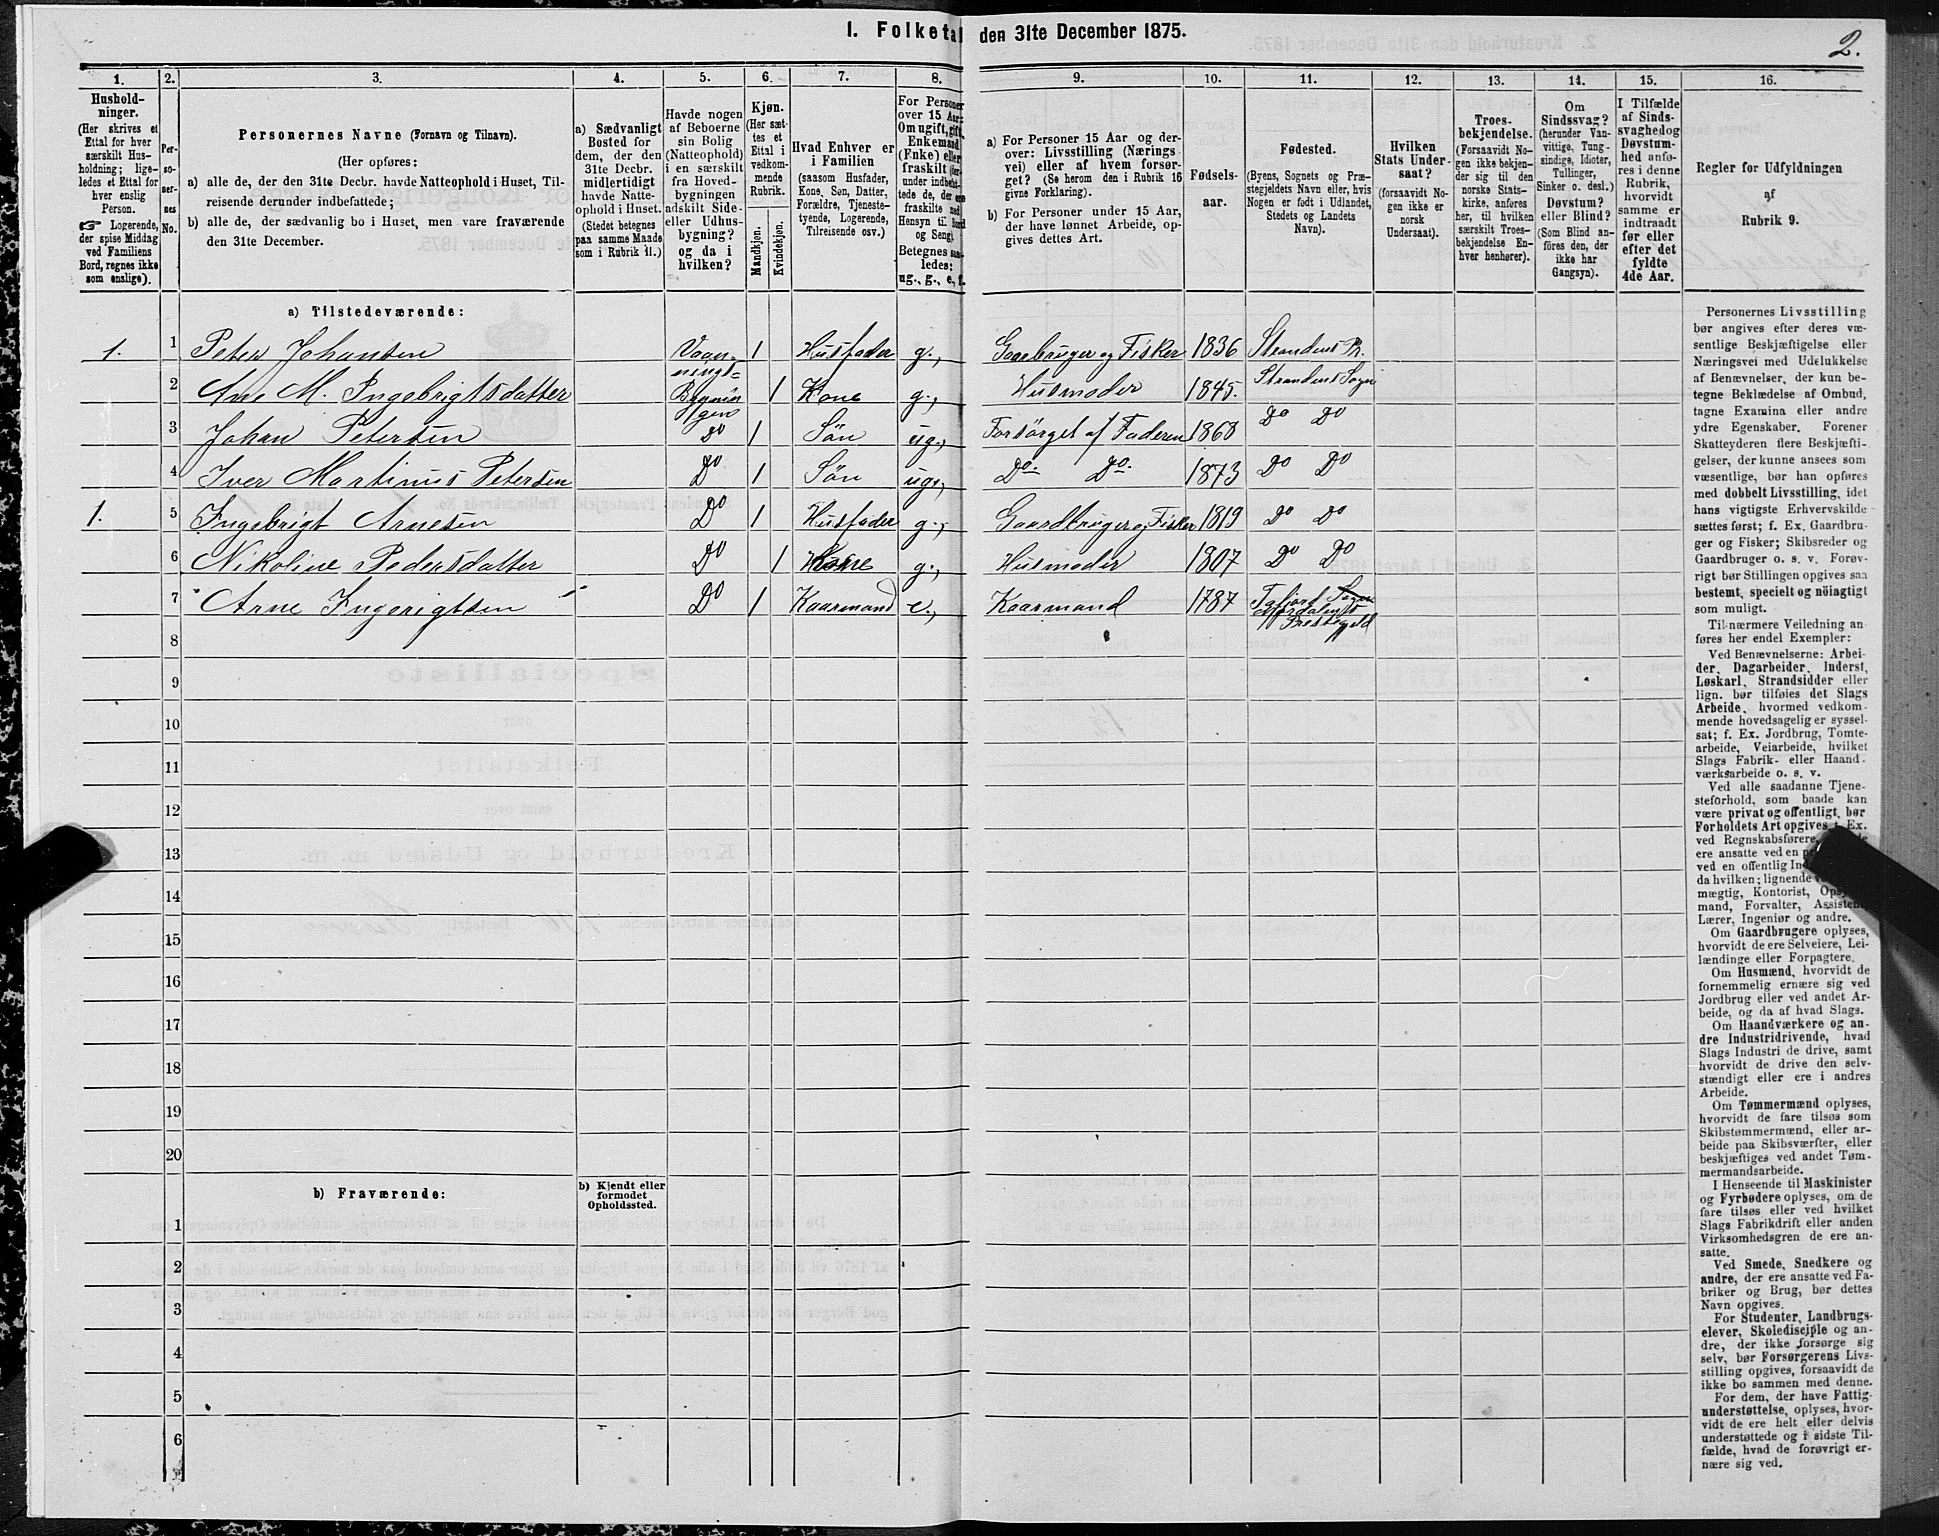 I. Folketal den 31te December 1875.
2.
1.
2.
3.
4.
5.
6.
7.
8.
9.
10.
11.
12.
13.
14.
15.
16.
Hushold-
ninger.
(Her skrives et
Ettal for hver
særskilt Hus-
holdning; lige-
ledes et Ettal for
hver enslig
Person.
☞ Logerende,
der spise Middag
ved Familiens
Bord, regnes ikke
som enslige).
Per-
so-
ner-
nes
No.
Personernes Navne (Fornavn og Tilnavn).
(Her opføres:
a) alle de, der den 31te Decbr. havde Natteophold i Huset, Til-
reisende derunder indbefattede;
b) alle de, der sædvanlig bo i Huset, men vare fraværende
den 31te December.
a) Sædvanligt
Bosted for
dem, der den
31te Decbr.
midlertidigt
havde Natte-
ophold i Huset.
(Stedet betegnes
paa samme Maade
som i Rubrik 11.)
Havde nogen
af Beboerne
sin Bolig
(Natteophold)
i en særskilt
fra Hoved-
bygningen
adskilt Side-
eller Udhus-
bygning?
og da i
hvilken?
Kjøn.
(Her sæt-
tes et
Ettal i
vedkom-
mende
Rubrik.
Mandkjøn.
Kvindekjøn.
Hvad Enhver er
i Familien
(saasom Husfader,
Kone, Søn, Datter,
Forældre, Tjeneste-
tyende, Logerende,
Tilreisende osv.)
For Personer
over 15 Aar:
Om ugift, gift,
Enkemand
(Enke) eller
fraskilt (der-
under indbefat-
tede de, der ere
fraskilte med
Hensyn til Bord
og Seng).
Betegnes saa-
ledes:
ug., g., e., f.
a) For Personer 15 Aar og der-
over: Livsstilling (Nærings-
vei) eller af hvem forsør-
get? (Se herom den i Rubrik 16
givne Forklaring).
b) For Personer under 15 Aar,
der have lønnet Arbeide, op-
gives dettes Art.
Fødsels-
aar.
Fødested.
(Byens, Sognets og Præ-
stegjeldets Navn eller, hvis
Nogen er født i Udlandet,
Stedets og Landets
Navn).
Hvilken
Stats Under-
saat?
(forsaavidt No-
gen ikke er
norsk
Undersaat).
Troes-
bekjendelse.
(Forsaavidt No-
gen ikke bekjen-
der sig til den
norske Stats-
kirke, anføres
her, til hvilken
særskilt Troes-
bekjendelse En-
hver henhører).
Om
Sindssvag?
(herunder Van-
vittige, Tung-
sindige, Idioter,
Tullinger,
Sinker o. desl.)
Døvstum?
eller Blind?
(Som Blind an-
føres den, der
ikke har
Gangsyn).
I Tilfælde
af Sinds-
svaghed og
Døvstum-
hed anfø-
res i denne
Rubrik,
hvorvidt
samme er
indtraadt
før eller
efter det
fyldte
4de Aar.
Regler for Udfyldningen
af
Rubrik 9.
a) Tilstedeværende:
1. 1 Peter Johansen Vaan- 1 Husfader g., Gaarbruger og Fisker 1836 Strandens Pr.
nings-
2 Ane M. Ingebrigtsdatter Bygnin 1 Kone g., Husmoder 1845. Strandens Sogn
gen
3 Johan Petersen Do 1 Søn ug., Forsörget af Faderen 1868 Do Do
4 Iver Martinus Petersen Do 1 Søn ug., Do. Do. 1873 Do Do
1. 5 Ingebrigt Arnesen Do 1 Husfader g., Gaardbruger og Fisker 1819 Do Do
6 Nikoline Pedersdatter Do 1 Kone g., Husmoder 1807 Do Do
7 Arne Ingerigtsen Do 1 Kaarmand e., Kaarmand 1787 Tafjord Sogn
Nordalens
Prestegjeld
8
9
10
11
12
13
14
15
16
17
18
19
20
b) Fraværende:
b) Kjendt eller
formodet
Opholdssted.
1
2
3
4
5
6
Personernes Livsstilling
bør angives efter deres væ-
sentlige Beskjæftigelse eller
Næringsvei med Udelukkelse
af Benævnelser, der kun be-
tegne Beklædelse af Ombud,
tagne Examina eller andre
ydre Egenskaber. Forener
Skatteyderen flere Beskjæfti-
gelser, der kunne ansees som
væsentlige, bør han opføres
med dobbelt Livsstilling, idet
hans vigtigste Erhvervskilde
sættes først; f. Ex. Gaardbru-
ger og Fisker; Skibsreder og
Gaardbruger o. s. v. Forøv-
rigt bør Stillingen opgives saa
bestemt, specielt og nöiagtigt
som muligt.
Til nærmere Veiledning an-
føres her endel Exempler:
Ved Benævnelserne: Arbei-
der, Dagarbeider, Inderst,
Løskarl, Strandsidder eller
lign. bør tilføies det Slags
Arbeide, hvormed vedkom-
mende hovedsagelig er syssel-
sat; f. Ex. Jordbrug, Tomte-
arbeide, Veiarbeide, hvilket
Slags Fabrik- eller Haand-
værksarbeide o. s. v.
Ved alle saadanne Tjene-
steforhold, som baade kan
være privat og offentligt, bør
Forholdets Art opgives, f. Ex.
ved Regnskabsførere,
ere ansatte ved en
ved en offentlig
da hvilken; lignende
mægtig, Kontorist,
mand, Forvalter, Assistent,
Lærer, Ingeniør og andre.
Om Gaardbrugere oplyses,
hvorvidt de ere Selveiere, Lei-
lændinge eller Forpagtere.
Om Husmænd, hvorvidt de
fornemmelig ernære sig ved
Jordbrug eller ved andet Ar-
beide, og da af hvad Slags.
Om Haandværkere og an-
dre Industridrivende, hvad
Slags Industri de drive, samt
hvorvidt de drive den selv-
stændigt eller ere i andres
Arbeide.
Om Tømmermænd oplyses,
hvorvidt de fare tilsøs som
Skibstømmermænd, eller ar-
beide paa Skibsværfter, eller
beskjæftiges ved andet Tøm-
mermandsarbeide.
I Henseende til Maskinister
og Fyrbødere oplyses, om de
fare tilsøs eller ved hvilket
Slags Fabrikdrift eller anden
Virksomhedsgren de ere an-
satte.
Ved Smede, Snedkere og
andre, der ere ansatte ved Fa-
briker og Brug, bør dettes
Navn opgives.
For Studenter, Landbrugs-
elever, Skoledisciple og an-
dre, der ikke forsørge sig
selv, bør Forsørgerens Livs-
stilling opgives, forsaavidt de
ikke bo sammen med denne.
For dem, der have Fattig-
understøttelse, oplyses, hvor-
vidt de ere helt eller delvis
understøttede og i sidste Til-
fælde, hvad de forøvrigt er-
nære sig ved.